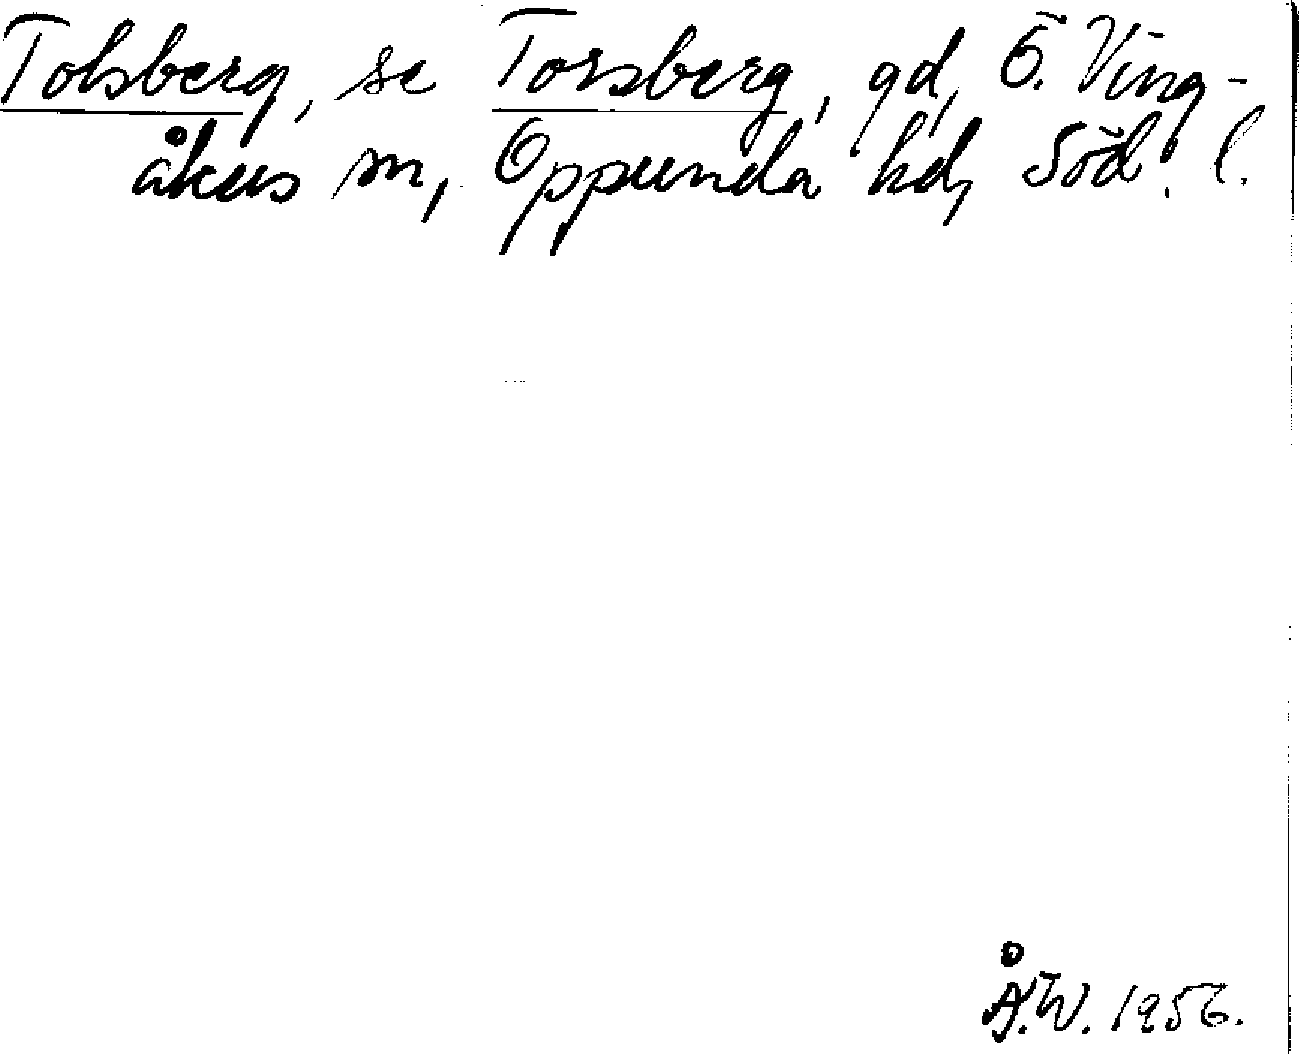 Tolsberg, se Torsberg, gd, Ö. Ving-
åkers sn, Oppunda hd, Söd. l.
Å.W. 1956.